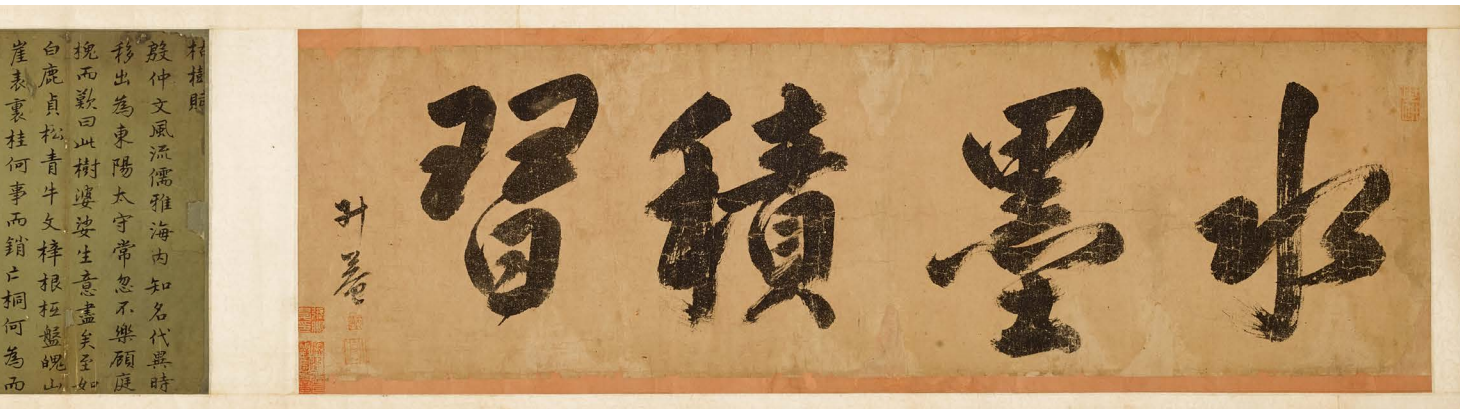 水墨積習
升菴
枯樹賦
殷仲文風流儒雅海內知名代異時
移出為東陽太守常忽不樂顧庭
槐而歎曰此樹婆娑生意盡矣至如
白鹿貞松青牛文梓根柢盤魄山
崖表裏桂何事而銷亡桐何為而